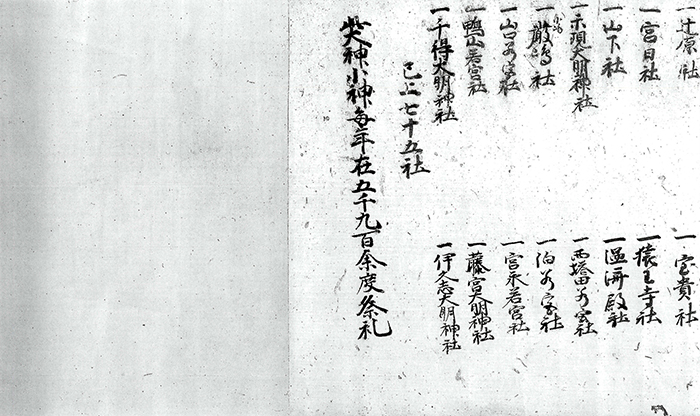 一辻原社
一宮貴社
一宮日社
一猿王寺社
一山下社
一温済殿社
一示現大明神社
一西塔田若宮社
一厳嶋社
一泊若宮社
一山口若宮社
一宮永若宮社
一鴨山若宮社
一藤宮大明神社
一千得大明神社
一伊久志大明神社
已上七十五社
此大神小神毎年在五千九百余度祭礼